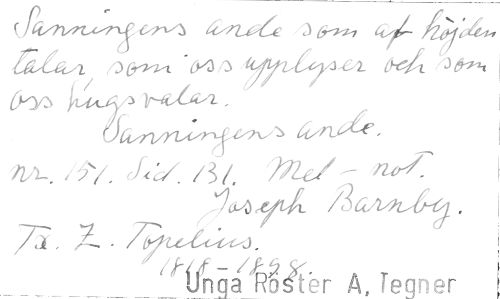 Sanningens ande som af höjden
talar, som oss upplyser och som
oss hugsvalar.
Sanningens ande.
nr. 151. Sid. 131. Mel - not.
Joseph Barnby.
Tx. Z. Topelius.
1818-1898.
Unga Röster A, Tegner